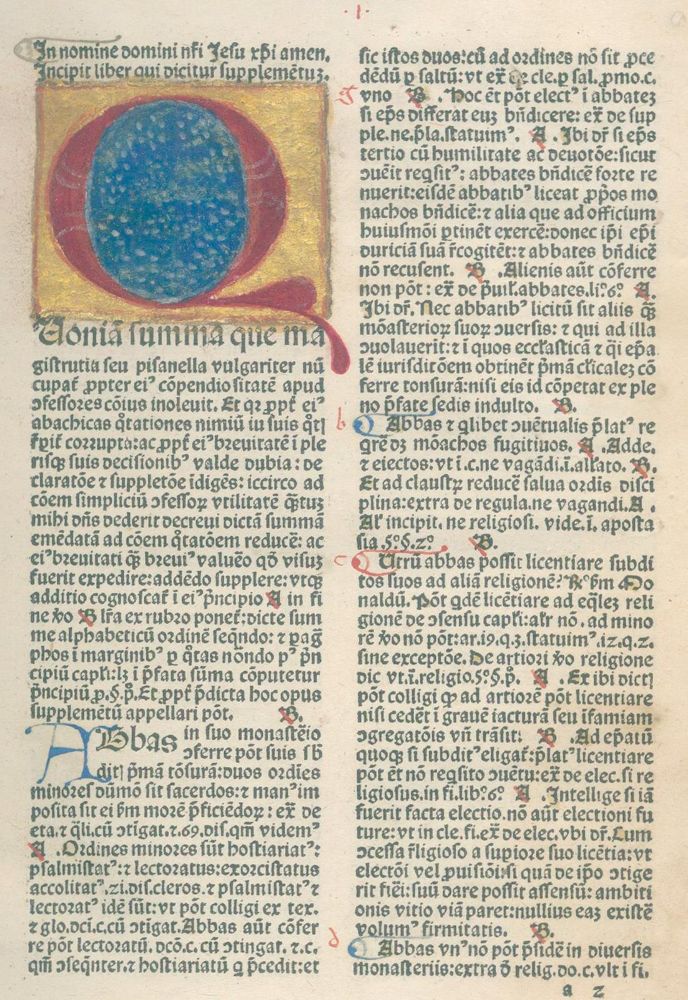 .I.
In nomine domini nr̄i Jesu xp̄i amen.
Incipit liber qui dicitur supplemētuꝫ.
Q
Uoniā summa que ma
gistrutia seu pisanella vulgariter nū
cupat᷑ ꝓpter eiꝰ cōpendiositatē apud
ↄfessores cōius inoleuit. Et qꝛ ꝓpt᷑ eiꝰ
abachicas q̄tationes nimiū iu suis q̄tꝭ
corrupta:ac ꝓpt᷑ eiꝰ breuitatē ī ple
risqꝫ suis decisionibꝰ valde dubia: de
claratōe ⁊ suppletōe īdigēs: iccirco ad
cōem simpliciū ↄfessoꝝ vtilitatē q̄ꝫtuꝫ
mihi dn̄s dederit decreui dictā summā
emēdatā ad cōem q̄tatōem reducē: ac
eiꝰ breuitati qꝫ breuiꝰ valuēo qd̄ visuꝫ
fuerit expedire: addēdo supplere: vtcꝫ
additio cognoscat᷑ ī eiꝰ p̄ncipio A in fi
ne ꝟo B lr̄a ex rubro ponet᷑: dicte sum
me alphabeticū ordinē seq̄ndo: ⁊ ꝑagͣ
phos ī marginibꝰ ꝑ q̄tas nōndo pꝰ p̄n
cipiū capl̄i: lꝫ ī p̄fata sūma cōputetur
p̄ncipiū ꝓ.§.p̊. Et ꝓpt᷑ p̄dicta hoc opus
supplemētū appellari pōt. B.
ABbas in suo monastēio
ↄferre pōt suis sb̄
ditꝭ p̄mā tōsurā: duos ordīes
minores dūmō sit sacerdos: ⁊ manꝰ im
posita sit ei ẜm morē p̄ficiēdoꝝ: ex̄ de
eta. ⁊ q̄li. cū ↄtigat. ⁊.69. dis. qm̄ videmꝰ
A .Ordines minores sūt hostiariatꝰ:
psalmistatꝰ: ⁊ lectoratus: exorcistatus
accolitatꝰ. zi. dis. cleros. ⁊ psalmistatꝰ ⁊
lectoratꝰ idē sūt: vt pōt colligi ex tex.
⁊ glo. dc̄i. c. cū ↄtigat. Abbas aūt cōfer
re pōt lectoratū. dcō. c. cū ↄtingat. ⁊. c.
qm̄ ↄseq̄nter. ⁊ hostiariatū q̄ p̄cedit: et
sic istos duos: cū ad ordines nō sit ꝓce
dēdū ꝑ saltū: vt ex̄ de cle. ꝑ sal. ꝓmo. c.
vno B .Hoc ēt pōt electꝰ ī abbateꝫ
si ep̄s differat euꝫ bn̄dicere: ex̄ de sup
ple. ne. p̄la. statuimꝰ. A .Ibi dr̄ si ep̄s
tertio cū humilitate ac deuotōe: sicut
ↄuēit reqsitꝰ: abbates bn̄dicē forte re
nuerit: eisdē abbatibꝰ liceat ꝓp̄os mo
nachos bn̄dicē: ⁊ alia que ad officium
huiusmōi ꝑtinēt exercē: donec ip̄i ep̄i
duriciā suā r̄cogitēt: ⁊ abbates bn̄dicē
nō recusent. B .Alienis aūt cōferre
non pōt: ex̄ de p̄uil. abbates. li.º 6.º A.
Ibi dr̄. Nec abbatibꝰ licitū sit aliis q̄ꝫ
mōasterioꝝ suoꝝ ↄuersis: ⁊ qui ad illa
ↄuolauerit: ⁊ ī quos eccl̄asticā ⁊ q̄i ep̄a
lē iurisditōem obtinēt p̄mā cl̄icaleꝫ cō
ferre tonsurā: nisi eis id cōpetat ex ple
no p̄fate sedis indulto. B.
b Abbas ⁊ qlibet ↄuētualis p̄latꝰ re
grēdꝫ mōachos fugitiuos. A .Adde.
⁊ eiectos: vt ī. c. ne vagādi. ī. all̄ato. B.
Et ad claustꝝ reducē salua ordīs disci
plina: extra de regula. ne vagandi. A .
Alꝰ incipit. ne religiosi. vide. ī. aposta
sia. 5.º §. 2.º B.
c Utrū abbas possit licentiare subdi
tos suos ad aliā religionē? ℞ ẜm Mo
naldū. Pōt qdē licētiare ad eq̄leꝫ reli
gionē de ↄsensu capl̄i: al̄r nō. ad mino
rē ꝟo nō pōt: ar. i9. q. 3. statuimꝰ. i2. q. 2.
sine exceptōe. De artiori ꝟo religione
dic vt. ī. religio. 5.º §. p̊. A .Ex ibi dictꝭ
pōt colligi ꝙ ad artiorē pōt licentiare
nisi cedēt ī grauē iacturā seu īfamiam
ↄgregatōis vn̄ trāsit: B .Ad ep̄atū
quoqꝫ si subditꝰ eligat᷑: p̄latꝰ licentiare
pōt ēt nō reqsito ↄuētu: ex̄ de elec. si re
ligiosus. in fi. lib.º 6.º A .Intellige si iā
fuerit facta electio. nō aūt electioni fu
ture: vt in cle. fi. ex̄ de elec. vbi dr̄. Cum
ↄcessa r̄ligioso a supiore suo licētia: vt
electōi vel ꝓuisiōi: si quā de ip̄o ↄtige
rit fiēi: suū dare possit assensū: ambiti
onis vitio viā paret: nullius eaꝫ existē
volumꝰ firmitatis. B.
d Abbas vnꝰ nō pōt p̄sidē in diuersis
monasteriis: extra ð relig. do. c. vlt i fi.
a z